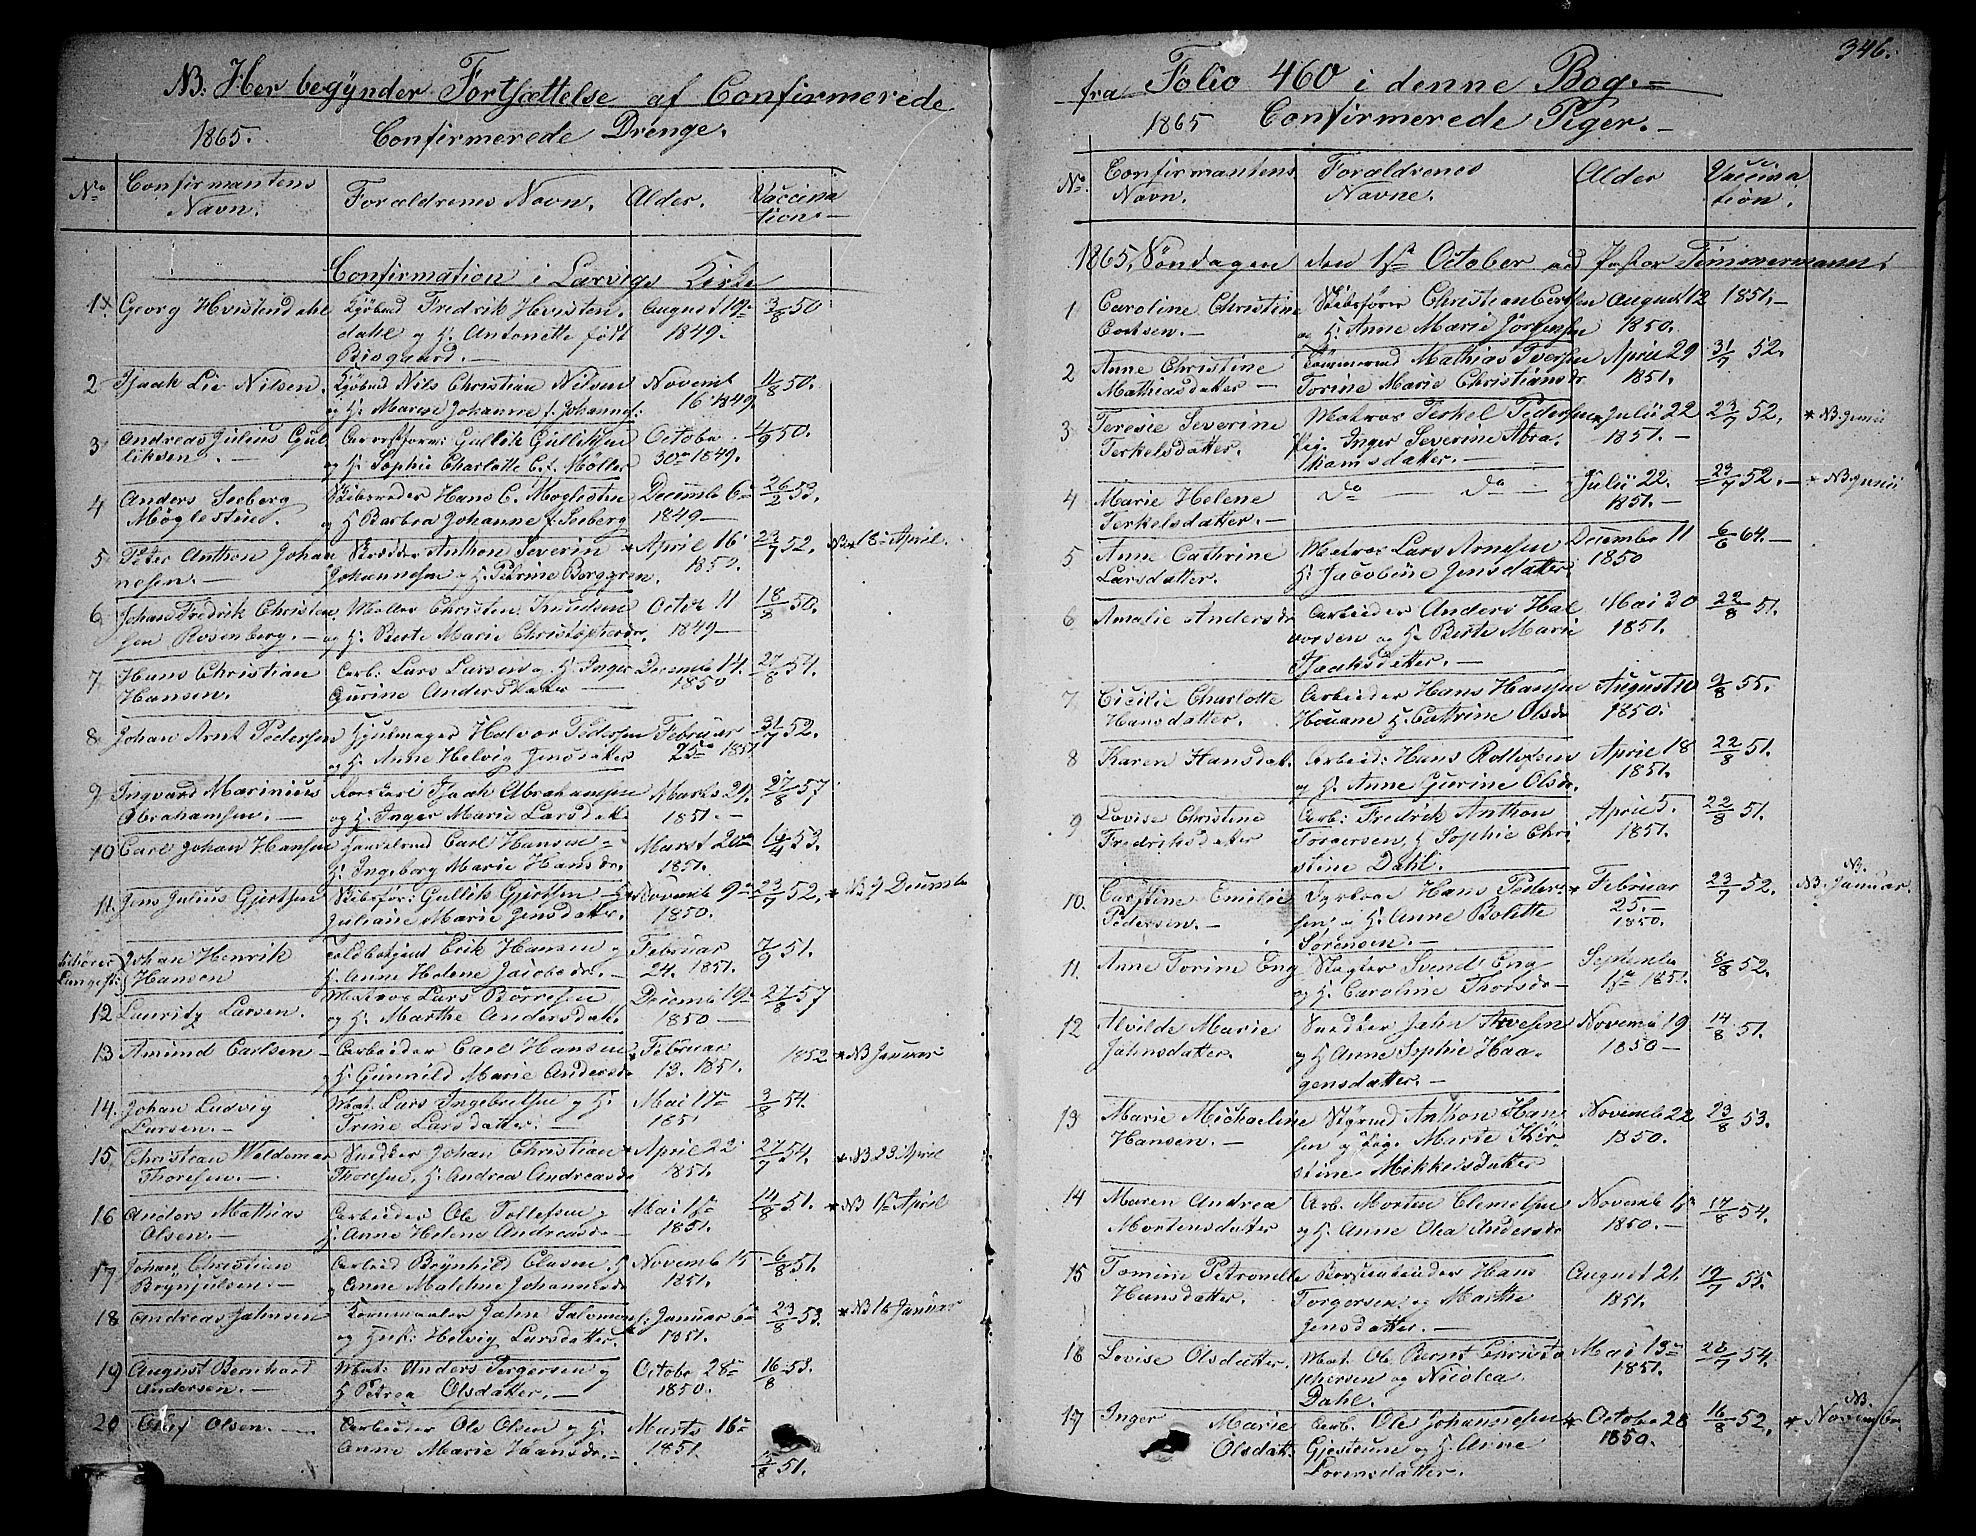 NB: Her begynder Fortsættelse af Confirmerede
1865. Confirmerede Drenge.
No Confirmantens Navn. Forældrenes Navn. Alder. Vaccination
Confirmation i Larvigs Kirke
1 Georg Hvistendahl Kjöbmd Fredrik Hvisten- August 19de 3/8 50
dahl og H. Antonette födt 1849.
Bisgaard.
2 Isaak Lie Nilsen. Kjöbmd Nils Christian Nilsen Novemb 11/8 50.
og H. Marie Johanne f. Johannes: 16. 1849.
3 Andreas Julius Gul- Gullik Gulliksen October 4/9 50.
liksen. og H. Sophie Charlotte C. f. Möller 30te 1849.
4 Anders Seeberg Skibsreder Hans C. Møglestue Decemb 6te 26/2 53.
Møglestue. og H Barbra Johanne f. Seeberg 1849
5 Peter Anthon Johan- Anthon Severin * April 16 23/7 52. NB * 18 April.
nesen. Johannesen og H. Petrine Borggren. 1850.
6 Johan Fredrik Christen- Christen Knudsen Octobr 11 18/8 50.
sen Rosenberg. og H. Berte Marie Christophersdr. 1849
7 Hans Christian Arb: Lars Larsen og H. Inger Decemb 14. 27/8 54.
Hansen. Gurine Andersdatter 1850
8 Johan Arnt Pedersen Hjulmager Halvor Pedersen Februar 31/7 52.
og H. Anne Helvig Jensdatter 25de 1851
9 Ingvard Marinius Isaak Abrahamsen Marts 29. 27/8 57
Abrahamsen. og H. Inger Marie Larsdat. 1851.
10 Carl Johan Hansen Carl Hansen Marts 16/4 53.
H. Ingeborg Marie Hansdr. 1851.
11. Jens Julius Gjertsen Skibsför: Gullik Gjertsen H * Novemb 9de 23/7 52. * NB 9 Decembr
Juliane Marie Jensdatter. 1850.
Johan Henrik Toldbetjent Erik Hansen og Februar 7/9 51.
Hansen H. Anne Helene Jacobsdr. 24. 1851.
12 Lauritz Larsen. Matros Lars Börresen Decemb 19de 27/8 57
og H. Marthe Andersdat. 1850
13 Amund Carlsen Arbeider Carl Hansen * Februar 1852 * NB Januar
og H. Gunnild Marie Andersdr 13. 1851.
14. Johan Ludvig Mat. Lars Ingebretsen og H. Mai 17de 3/8 54.
Larsen. Trine Larsdatter. 1851
15 Christian Waldemar Snedker Johan Christian * April 22 27/7 54. * NB 23 April
Thoresen. Thoresen, H. Andrea Andreasdr 1851.
16 Anders Mathias Arbeider Ole Tollefsen og Mai 1ste 14/8 51. * NB 1ste April
Olsen. H. Anne Helene Andreasdr 1851.
17 Johan Christian Arbeid Brynhild Clasen, H Novemb 15 6/8 51.
Brynjulsen Anne Malene Johannesdr 1851.
18 Andreas Jahnsen Kornmaaler Jahn Salvesen Januar 6te 23/8 53. * NB 16 Januar
og Helvig Larsdatter. 1851.
19 August Bernhard Mat: Anders Jörgersen og Octobr 28de 16/8 53.
Andersen. H Petrea Olsdatter. 1850.
20 Oluf Olsen. Arbeider Ole Olsen og H. Marts 16de 5/8 51.
Anne Marie Hansdr. 1851.
346.
fra Folio 460 i denne Bog.
1865 Confirmerede Piger.
No. Confirmantens Navn. Forældrenes Navne. Alder Vaccination.
1865, Söndagen den 1ste October ad Pastor Timmermann.
1 Caroline Christine Skibsförer Christian Carlsen August 12 1851.
Carlsen. og H. Anne Marie Jörgensen 1850.
2 Anne Christine Tömmermd Mathias Iversen April 29 31/7 52.
Mathiasdatter Torine Marie Christiansdr. 1851.
3 Teresie Severine Matros Terkel Pedersen * Julii 22 23/7 52. * NB. Junii
Terkelsdatter. Inger Severine Abra- 1851.
hamsdatter.
4 Marie Helene Do Do Julii 22. 23/7 52. * NB. Junii
Terkelsdatter. 1851.
5 Anne Cathrine Matros Lars Arnesen Decembr 11 6/6 64.
Larsdatter. H. Jacobine Jensdatter. 1850
6 Amalie Andersdr Arbeider Anders Hal- Mai 30 22/8 51.
vorsen og H. Berte Marie 1851.
Isaaksdatter.
7 Cicilie Charlotte Arbeider Hans Hansen August 10 9/8 55.
Hansdatter. Houane H. Cathrine Olsdr 1850.
8 Karen Hansdat. Arbeid: Hans Rolfsen April 18 22/8 51.
og H. Anne Gurine Olsdr. 1851.
9 Lovise Christine Arb: Fredrik Anthon April 5. 22/8 51.
Fredriksdatter Torgersen, H Sophie Chri- 1851.
stine Dahl.
10. Carstine Emilie Hans Peder- * Februar 23/7 52. * NB. Januar.
Pedersen. sen, H. Anne Bolette 25.
Sörensen. 1850.
11. Anne Torine Eng Slagter Svend Eng Septembr 8/8 52.
og H. Caroline Thorsdr 1ste 1851.
12 Alvilde Marie Snedker Jahn Arvesen Novemb 19 14/8 51.
Jahnsdatter. og H Anne Sophie Haa- 1850
gensdatter.
13 Marie Michaeline Styrmd Anthon Han- Novemb 22 23/8 53.
Hansen. sen og Marte Kir- 1850.
stine Mikkelsdatter
14 Maren Andrea Arb. Morten Clemetsen Novemb 17/8 54.
Mortensdatter og H. Anne Olea Andersdr 1850.
15 Tomine Petronelle Hans August 21. 19/7 55.
Hansdatter. Torgersen og Marthe 1851.
Jensdatter.
16 Lovise Olsdatter. Mat. Ole Bernt Christo- Mai 13de 20/7 54.
phersen og Nicolea 1851.
Dahl.
17 Inger Marie Arb. Ole Johannesen * Octobr 28 16/8 52. * NB. November
Olsdat. Gjestrune og H. Anne 1850.
Lorensdatter.